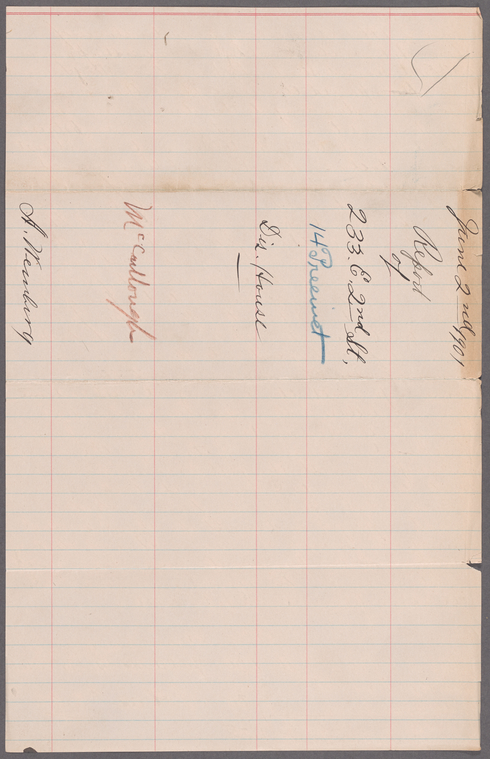 June 2nd, 1901
Report
of
233. E. 2nd St,
14 Precinct
Dis. House
McCullough
A. Nemburg